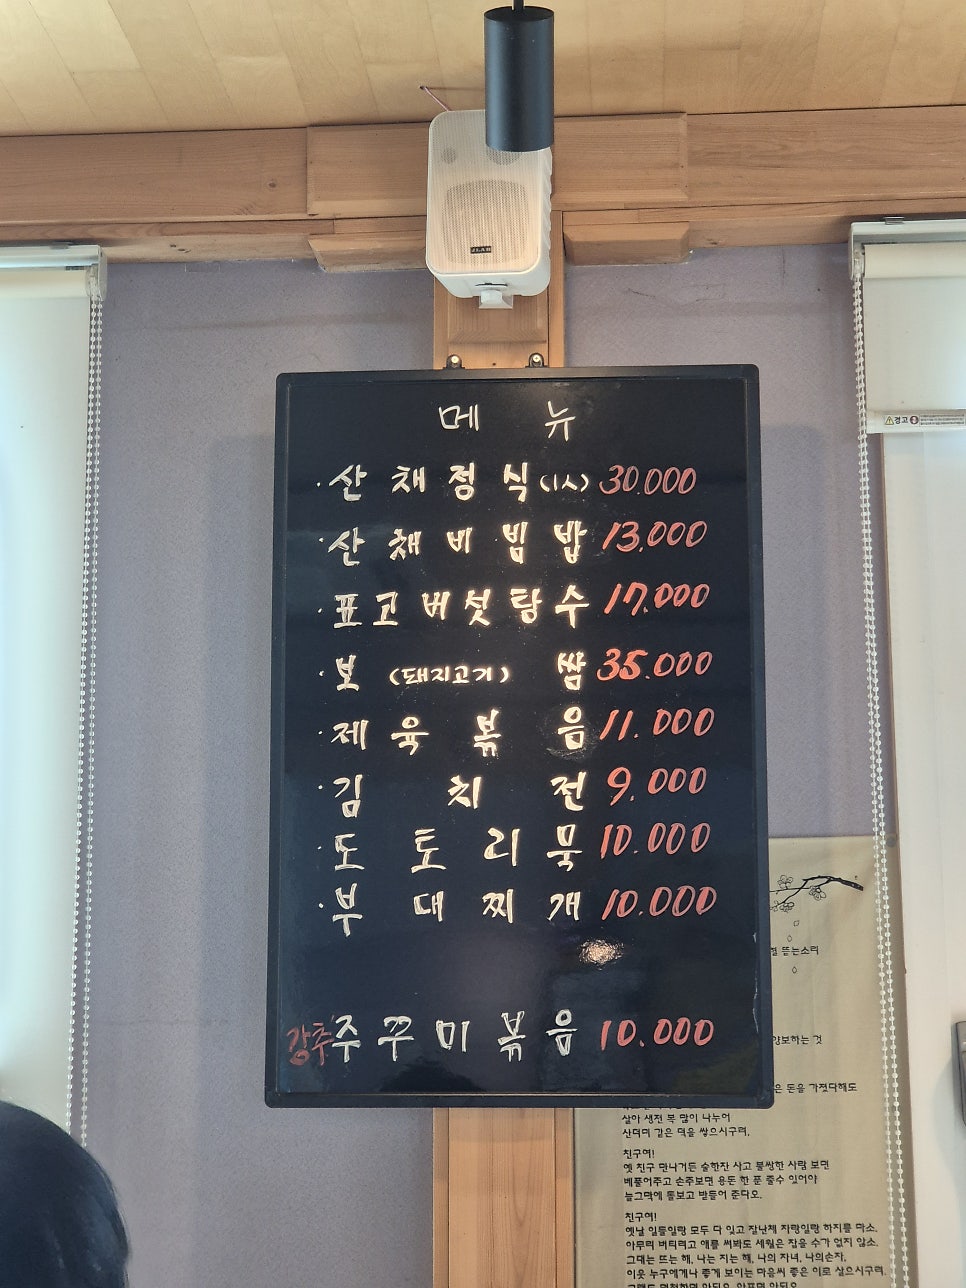 JLAB
메 뉴
· 산 채 정 식 (1人) 30.000
· 산 채 비 빔 밥 13,000
· 표 고 버 섯 탕 수 17.000
· 보 (돼지고기) 쌈 35.000
· 제 육 볶 음 11.000
· 김 치 전 9.000
· 도 토 리 묵 10.000
· 부 대 찌 개 10.000
강추 주 꾸 미 볶 음 10.000
경고
뜯는소리
양보하는 것
은 돈을 가졌다해도
살아 생전 복 많이 나누어
산더미 같은 덕을 쌓으시구려.
친구여!
옛 친구 만나거든 술한잔 사고 불쌍한 사람 보면
베풀어주고 손주보면 용돈 한 푼 줄수 있어야
늘그막에 통보고 받들어 준다오.
친구여!
옛날 일들일랑 모두 다 잊고 잘난체 자랑일랑 하지를 마소.
아무리 버티려고 애를 써봐도 세월은 잡을 수가 없지 않소.
그대는 뜨는 해, 나는 지는 해, 나의 자녀, 나의손자,
이웃 누구에게나 좋게 보이는 마음씨 좋은 이로 살으시구려.